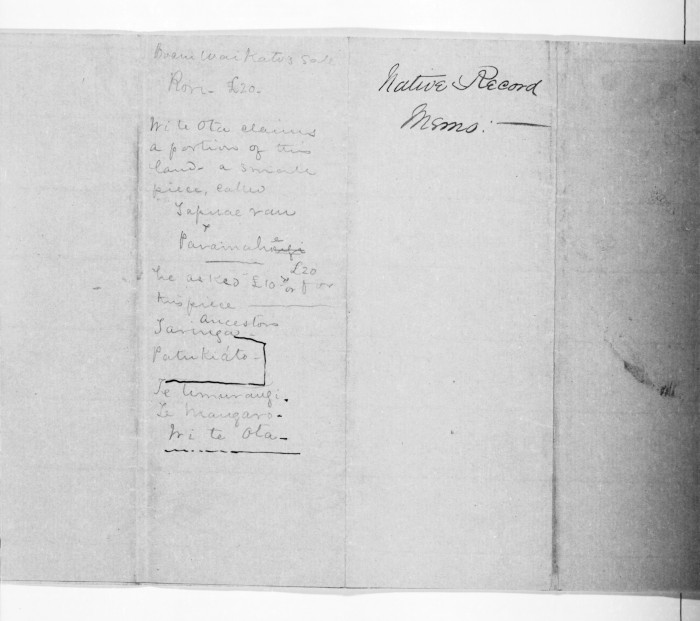 Waikato's Sale
£20.
Wi te Ota claims
a portion of this
land - a small
piece, called
Tapuae rau
Paramah
£20
he asked £10 or for
this piece
ancestors
Taringa -
Patukiato -
Te Umurangi.
Te Mangaro -
Wi te Ota -
Native Record
Memo: —